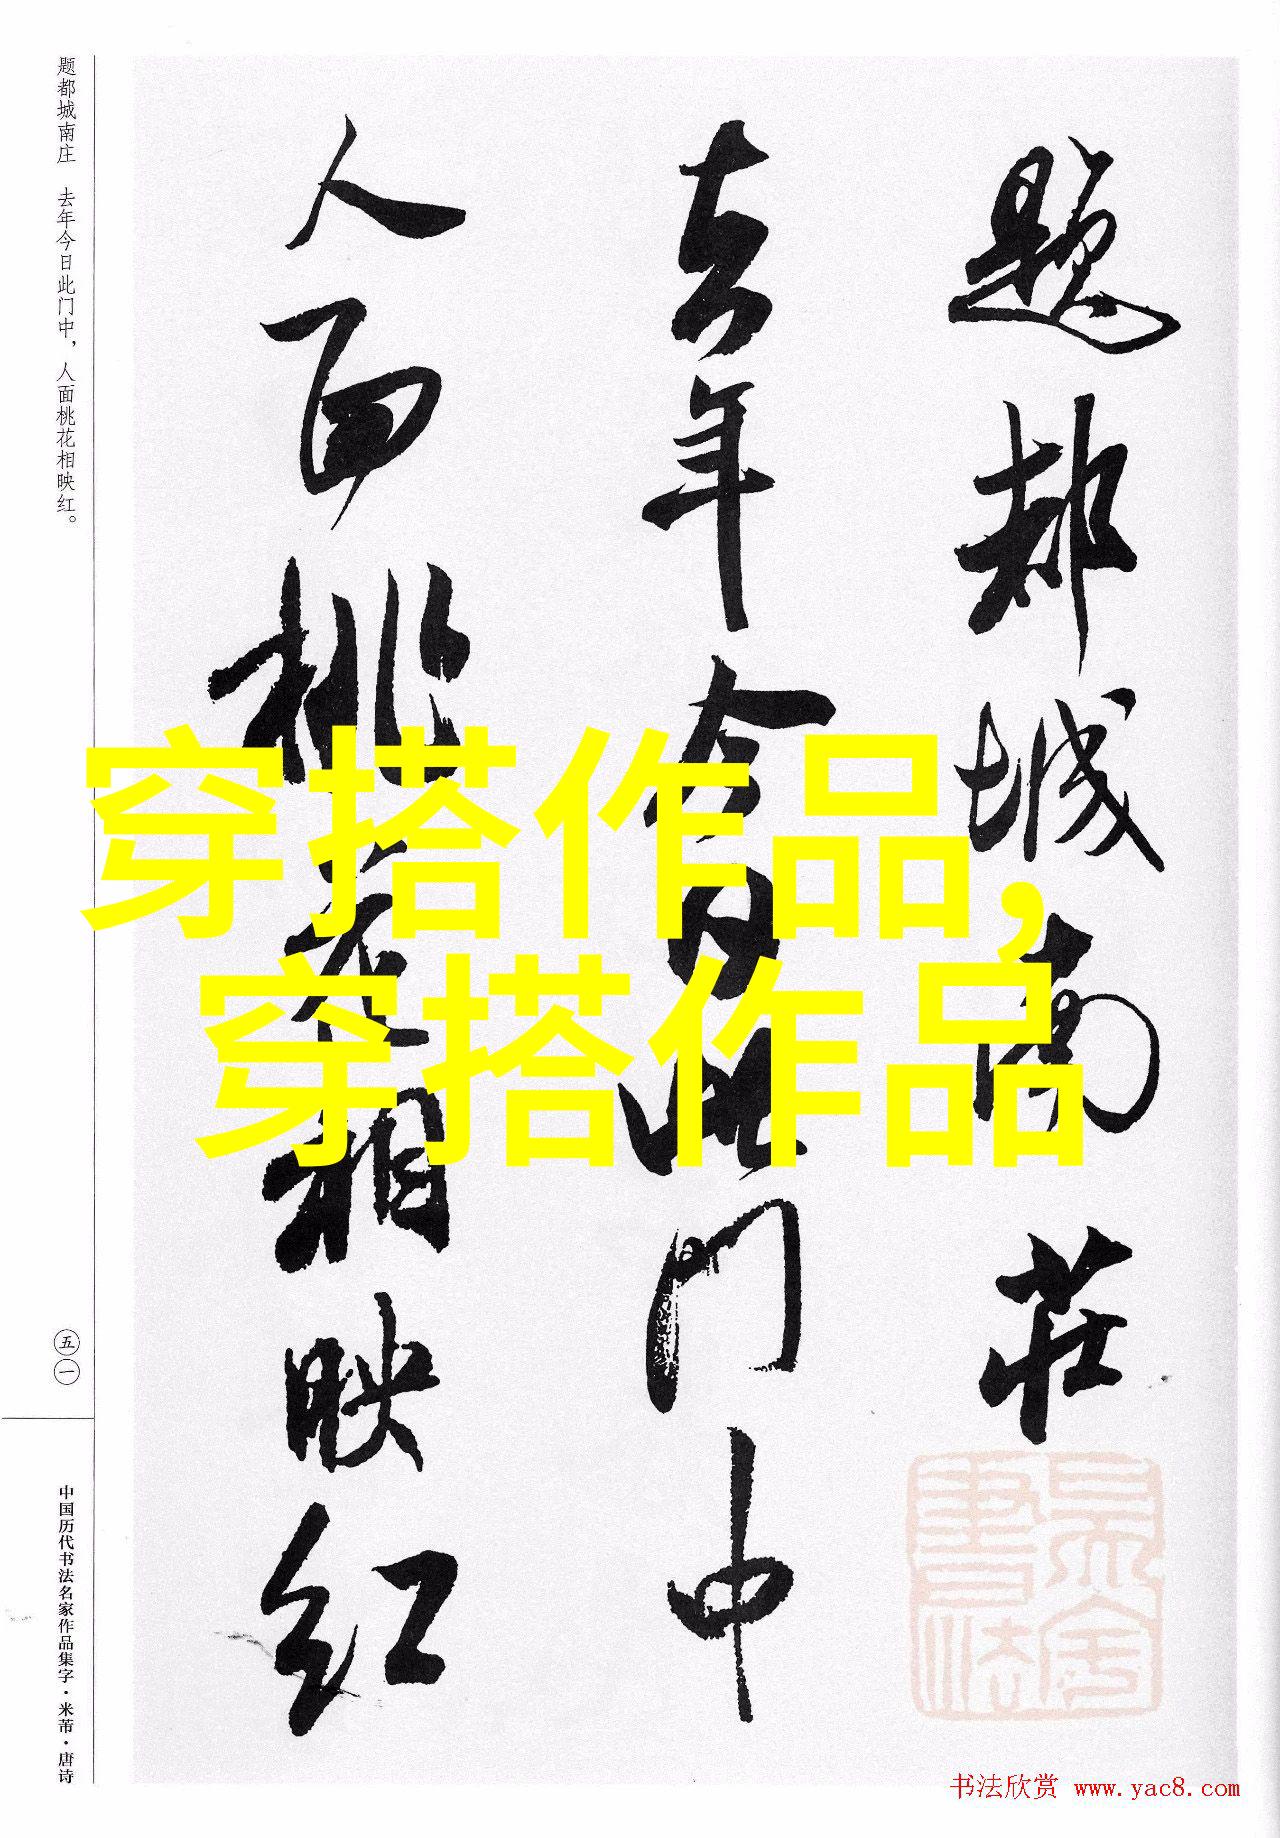 题都城南莊
去年今日此门中
人面桃花相映红
题都城南庄 去年今日此门中，人面桃花相映红。
五一
中国历代书法名家作品集字·米芾·唐诗
穿搭作品,
穿搭作品
书法欣赏 www.yac8.com